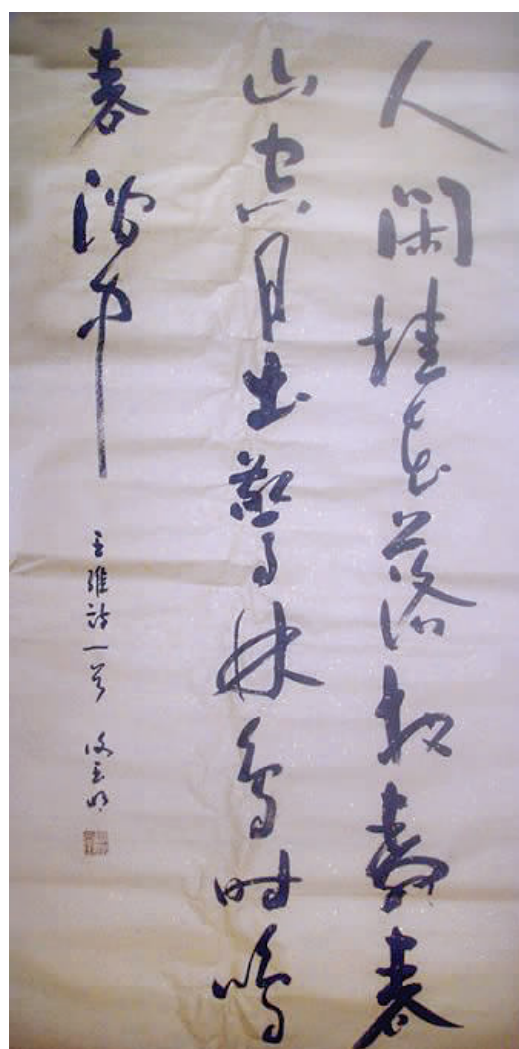 人閑桂花落夜静春
山空月出驚林鳥时鳴
春澗中
王維詩一首